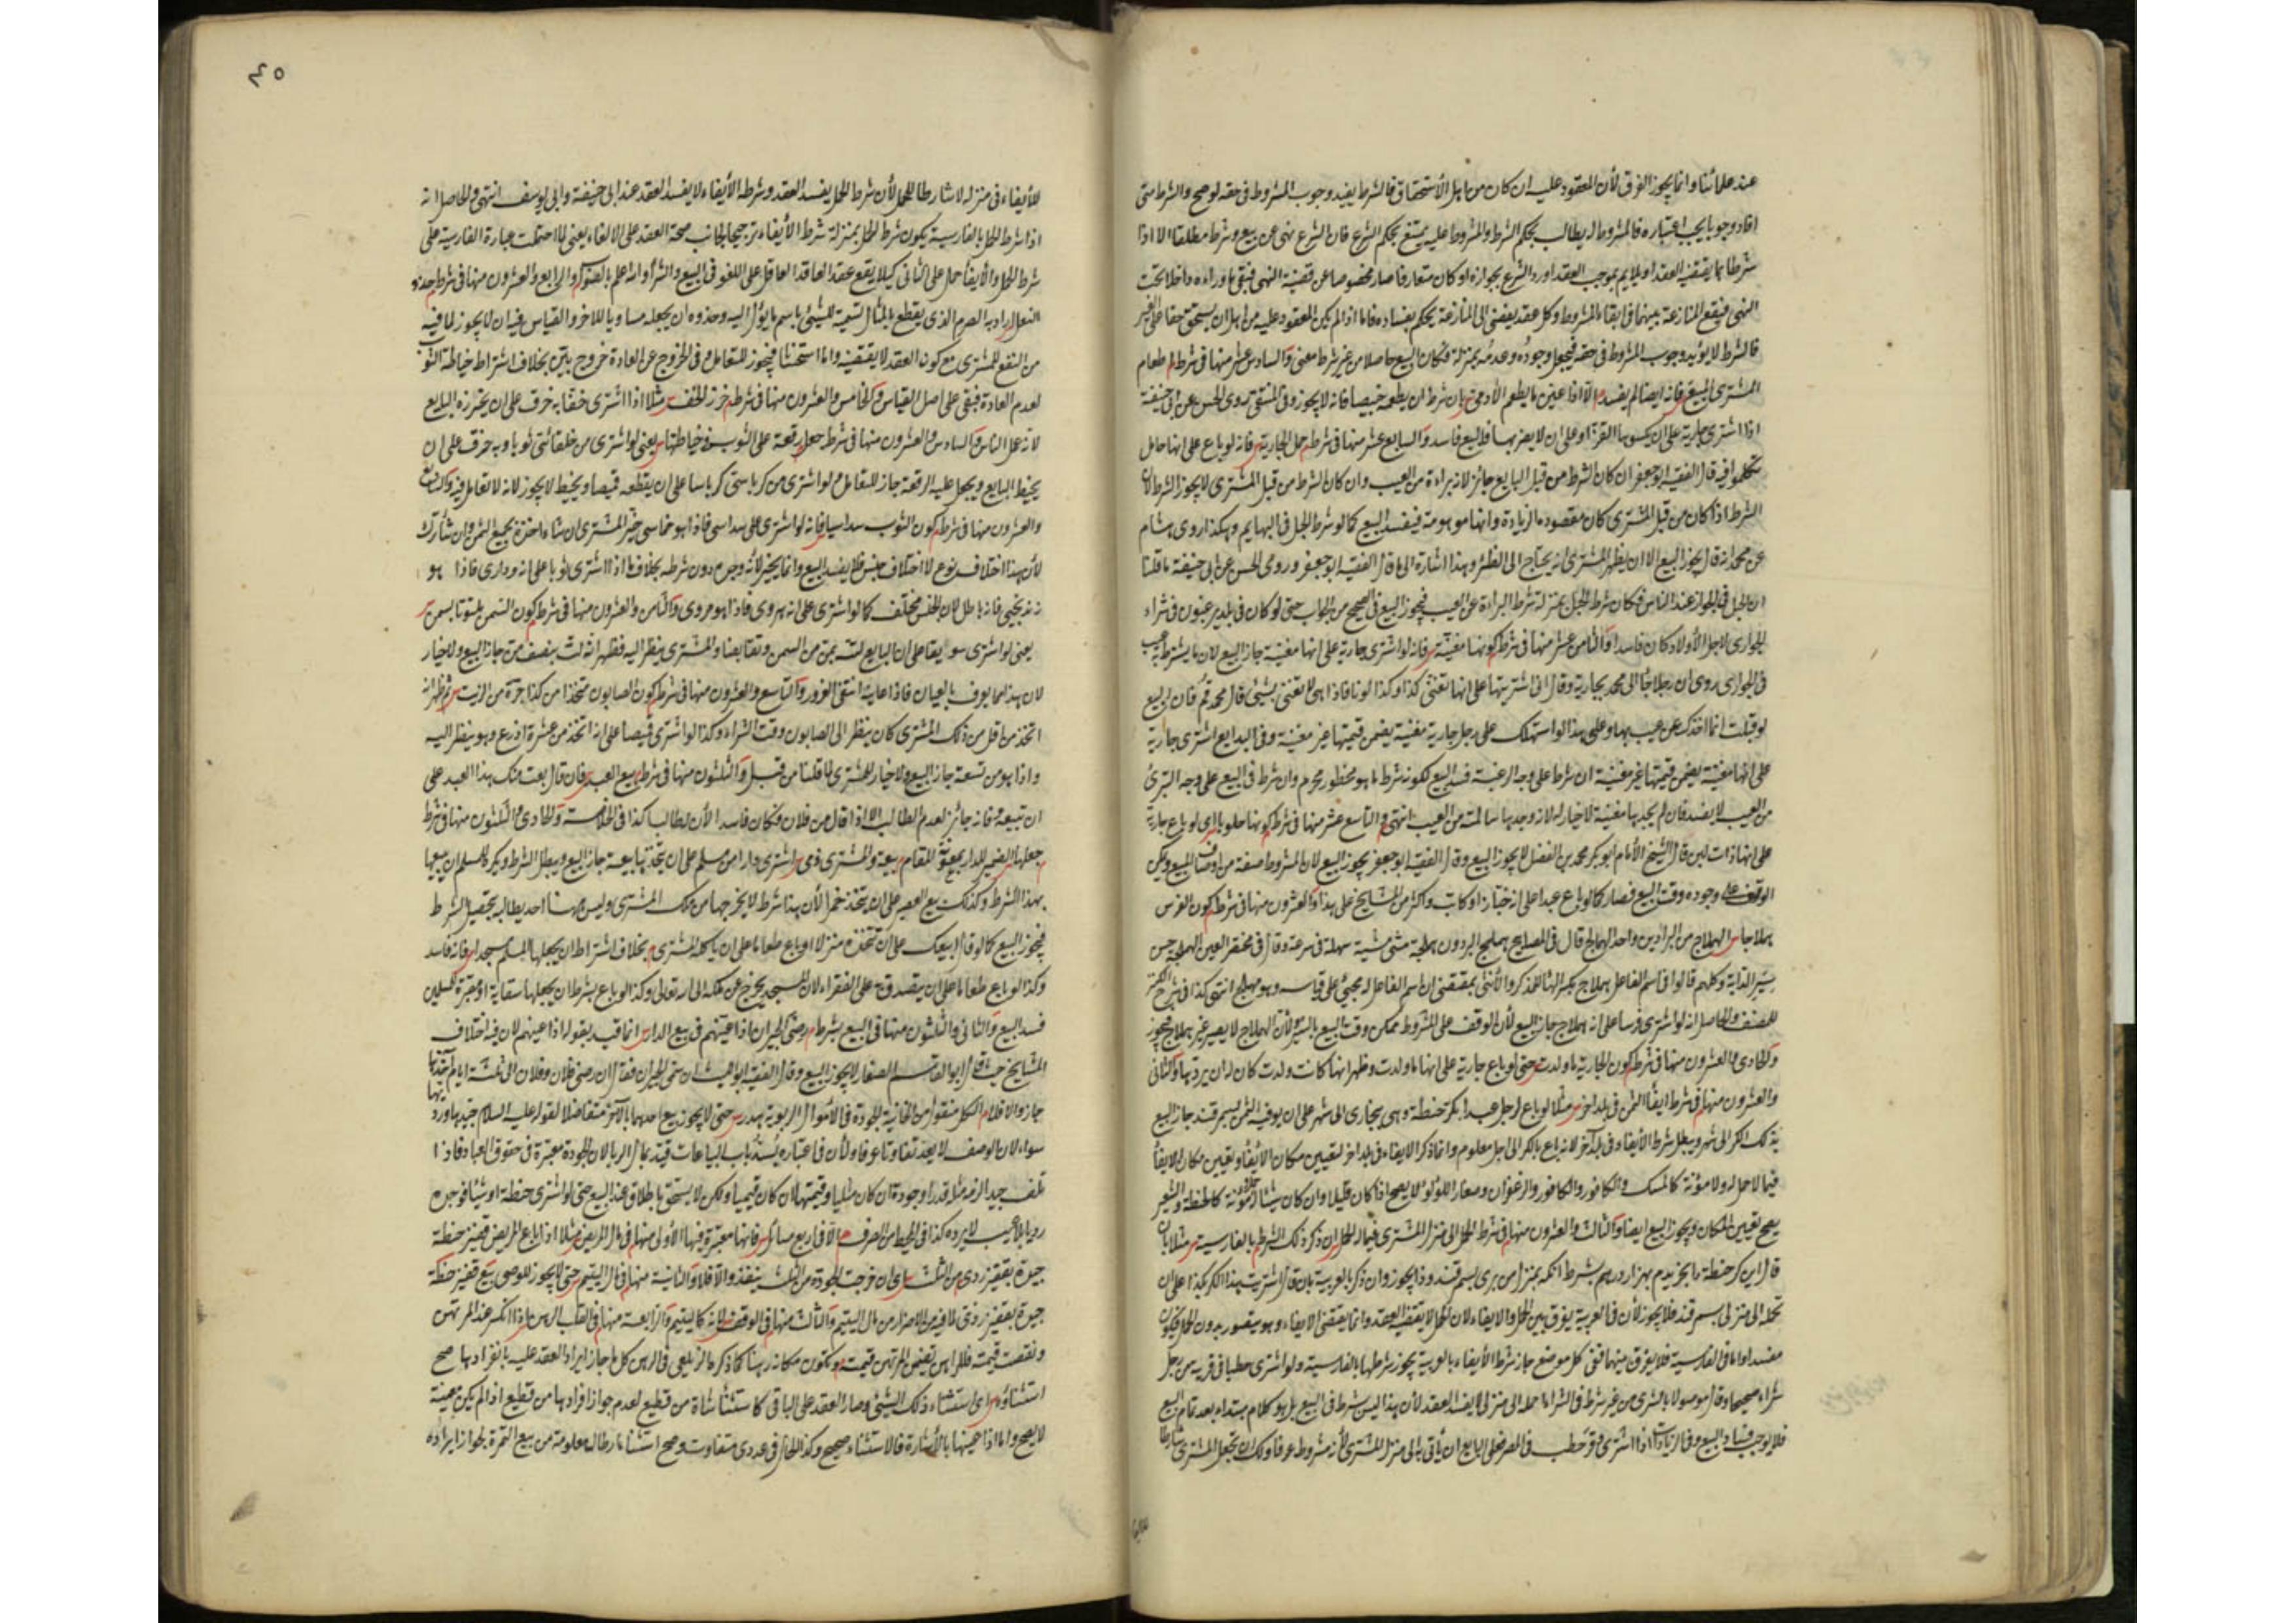 عند علمائنا وانما يجوز الفرق لأن المعقود عليه ان كان من اهل الأستحقاق فالشرط يفيد وجوب المشروط فى حقه لو صح والشرط متى
افاد وجوبا يجب اعتباره فالمشروط له يطالب بحكم الشرط والمشروط عليه يمتنع بحكم الشرع فان الشرع نهى عن بيع وشرط مطلقا الا اذا
شرطا ما يقتضيه العقد او يلايم بموجب العقد او ورد الشرع بجوازه او كان متعارفا صار مخصوصا عن قضية النهى فبقى ما وراءه داخلا تحت
النهى فيقع المنازعة بينهما فى ايفاء المشروط وكل عقد يفضى الى المنازعة يحكم بفساده فاما اذا لم يكن المعقود عليه من اهل ان يستحق حقا على الغير
فالشرط لا يؤيد وجوب المشروط فى حقه فيجعل وجوده وعدمه بمنزلة فكان البيع حاصلا من غير شرط معنى والسادس عشر منها فى شرط اطعام
المشترى المبيع فانه ايضا لم يفسد الا اذا عين ما يطعم الأدمى بان شرط ان يطعمه خبيصا فانه لا يجوز وفى المنتقى روى الحسن عن ابى حنيفة
اذا اشترى جارية على ان يكسوها القز او على ان لا يضربها فالبيع فاسد والسابع عشر منها فى شرط حمل الجارية فانه لو باع على انها حامل
تكلموا فيه قال الفقيه ابو جعفر ان كان الشرط من قبل البايع جائز لأنه براءة من العيب وان كان الشرط من قبل المشترى لا يجوز الشرط لأن
الشرط اذا كان من قبل المشترى كان مقصوده الزيادة وانها موهومة فيفسد البيع كما لو شرط الحبل فى البهايم وهكذا روى هشام
عن محمد انه قال يجوز البيع الا ان يظهر المشترى انه يحتاج الى الظئر وهذا اشارة الى ما قال الفقيه ابو جعفر وروى الحسن عن ابى حنيفة ما قلنا
ان الحبل فى الجواز عند الناس فكان شرط الحبل بمنزلة شرط البراءة عن العيب فيجوز البيع فى الصحيح من الجواب حتى لو كان فى بلد يرغبون فى شراء
الجوارى لاجل الأولاد كان فاسدا والثامن عشر منها فى شرط كونها مغنية فانه لو اشترى جارية على انها مغنية جاز البيع لان ما يشترط به عيب
فى الجوارى روى ان رجلا جاء الى محمد بجارية وقال انى اشتريتها على انها تغنى كذا وكذا لونا فاذا هى لا تغنى بشيئ قال محمد قم فان البيع
لو قبلت انما اخذك عن عيب بها وعلى هذا لو استهلك على رجل جارية مغنية يضمن قيمتها غير مغنية وفى البدايع اشترى جارية
على انها مغنية يضمن قيمتها غير مغنية ان شرط على وجه الرغبة فسد البيع لكونه شرط ما هو محظور محرم وان شرط فى البيع على وجه التبرئ
من العيب لا يفسد فان لم يجدها مغنية لاخيار له لانه وجدها سالمة من العيب انتهى والتاسع عشر منها فى شرط كونها حلوبا اى لو باع جارية
على انها ذات لبن قال الشيخ الأمام ابو بكر محمد بن الفضل لا يجوز البيع وقال الفقيه ابو جعفر يجوز البيع لان المشروط صفة من اوصاف المبيع ويمكن
الوقف على وجوده وقت البيع فصار كما لو باع عبدا على انه خباز او كاتب واكثر من المشايخ على هذا والعشرون منها فى شرط كون الفرس
هملاجا الهملاج من البراذين واحد الهماليج قال فى المصابيح هملج البرذون هملجة مشى مشية سهلة فى سرعة وقال فى مختصر العين الهملجة حسن
سير الدابة وكلهم قالوا فى اسم الفاعل هملاج بكسر الهاء للذكر والأنثى بمقتضى ان اسم الفاعل لم يجئ على قياسه وهو مهملج انتهى كذا فى شرح الكنز
للمصنف والحاصل انه لو اشترى فرسا على انه هملاج جاز البيع لأن الوقف على المشروط ممكن وقت البيع بالسير ولأن الهملاج لا يصير غير هملاج فيجوز
والحادى والعشرون منها فى شرط كون الجارية ما ولدت حتى لو باع جارية على انها ما ولدت وظهر انها كانت ولدت كان له ان يردها والثانى
والعشرون منها فى شرط ايفاء الثمن فى بلد اخر مثلا لو باع لرجل عبدا بكر حنطة وهى ببخارى الى شهر على ان يوفيه الثمن بسمرقند جاز البيع
بذلك الكر الى شهر ويبطل شرط الأيفاء فى بلد آخر لانه باع بالكر الى اجل معلوم وانما ذكر الايفاء فى بلد اخر لتعيين مكان الأيفاء وتعيين مكان الايفاء
فيما لا حمل له ولا مؤنة كالمسك والكافور والزعفران وصغار اللؤلؤ لا يصح اذا كان قليلا وان كان شيئا له مؤنة كالحنطة والشعير
يصح تعيين المكان ويجوز البيع ايضا والثالث والعشرون منها فى شرط الحمل الى منزل المشترى فيما له الحمل ان ذكر ذلك الشرط بالفارسية مثلا بان
قال اين كر حنطة ما بخريدم بهزار درهم بشرط انكه بمنزل من برى بسمرقند وذا يجوز وان ذكر بالعربية بان قال اشتريت هذا الكر بكذا على ان
تحمله الى منزلى بسمرقند فلا يجوز لأن فى العربية يفرق بين الحمل والايفاء لان الحمل لا يقتضيه العقد وانما يقتضى الايفاء وهو يتصور بدون الحمل فيكون
مفسدا واما فى الفارسية فلا يفرق بينهما ففى كل موضع جاز شرط الأيفاء بالعربية يجوز شرطها بالفارسية ولو اشترى حطبا فى قرية من رجل
شراء صحيحا وقال موصولا بالشرى من غير شرط فى الشراء احمله الى منزلى لا يفسد العقد لأن هذا ليس شرط فى البيع بل هو كلام مبتداء بعد تمام البيع
فلا يوجب فساد البيع وفى الزيادات اذا اشترى وقر حطب فى المصر فعلى البايع ان يأتى به الى منزل المشترى لأنه مشروط عرفا ولك ان تجعل المشترى شارطا
٤٥
للأيفاء فى منزله لا شارطا للحمل لأن شرط الحمل يفسد العقد وشرطه الأيفاء لا يفسد العقد عند ابى حنيفة وابى يوسف انتهى والحاصل انه
اذا شرط الحمل بالفارسية يكون شرط الحمل بمنزلة شرط الأيفاء ترجيحا لجانب صحة العقد على الالغاء يعنى لما احتملت عبارة الفارسية على
شرط الحمل والأيفاء حمل على الثانى كيلا يقع عقد العاقد العاقل على اللغو فى البيع والشراء والله اعلم بالصواب والرابع والعشرون منها فى شرط حذو
النعل اراد به الصرم الذى يقطع بالمثال تسمية للشيئ باسم ما يؤل اليه وحذوه ان يجعله مساويا للاخر والقياس فيه ان لا يجوز لما فيه
من النفع للمشترى مع كون العقد لا يقتضيه واما استحسنا فيجوز للتعامل وفى الخروج عن العادة خروج بيّن بخلاف اشتراط خياطة الثوب
لعدم العادة فبقى على اصل القياس والخامس والعشرون منها فى شرط خرز الخف مثلا اذا اشترى خفا به خرق على ان يخرزه البايع
لأنه عمل الناس والسادس والعشرون منها فى شرط جعل رقعة على الثوب وخياطتها يعنى لو اشترى من خلقانى ثوبا وبه خرق على ان
يخيط البايع ويجعل عليه الرقعة جاز للتعامل ولو اشترى من كرباسى كرباسا على ان يقطعه قميصا ويخيط لا يجوز لانه لا تعامل فيه والسابع
والعشرون منها فى شرط كون الثوب سداسيا فانه لو اشترى على سداسى فاذا هو خماسى خير المشترى ان شاء اخذه بجميع الثمن وان شاء ترك
لأن هذا اختلاف نوع لا اختلاف جنس فلا يفسد البيع وانما يخير لأنه وجده دون شرطه بخلاف ما اذا اشترى ثوبا على انه ودارى فاذا هو
زندنيجى فانه باطل لان الجنس مختلف كما لو اشترى على انه هروى فاذا هو مروى والثامن والعشرون منها فى شرط كون السمن ملتوتا بسمن
يعنى لو اشترى سويقا على ان البايع لته بمن من السمن وتقابضا والمشترى ينظر اليه فظهر انه لت بنصف من جاز البيع ولا خيار
لان هذا مما يعرف بالعيان فاذا عاينه انتفى الغرور والتاسع والعشرون منها فى شرط كون الصابون متخذا من كذا جرة من الزيت ثم ظهر انه
اتخذ من اقل من ذلك المشترى كان ينظر الى الصابون وقت الشراء وكذا لو اشترى قميصا على انه اتخذ من عشرة اذرع وهو ينظر اليه
واذا هو من تسعة جاز البيع ولا خيار للمشترى لما قلنا من قبل والثلثون منها فى شرط بيع العبد فان قال بعت منك هذا العبد على
ان تبيعه فانه جائز لعدم الطالب الا اذا قال من فلان فكان فاسدا الأن له طالب كذا فى الخلاصة والحادى والثلثون منها فى شرط
جعلها الضمير للدار بمعونة المقام بيعة والمشترى ذمى اشترى دارا من مسلم على ان يتخذها بيعة جاز البيع ويبطل الشرط ويكره للمسلم ان يبيعها
بهذا الشرط وكذلك بيع العصير على ان يتخذ خمرا لأن هذا شرط لا يخرجها من ملك المشترى وليس هنا احد يطالبه بتحصيل الشرط
فيجوز البيع كما لو قال ابيعك على ان تتخذه منزلا او باع طعاما على ان يأكله المشترى بخلاف اشتراط ان يجعلها المسلم مسجدا فانه فاسد
وكذا لو باع طعاما على ان يتصدق على الفقراء لان المسجد يخرج عن ملكه الى الله تعالى وكذا لو باع بشرط ان يجعلها سقاية او مقبرة للمسلمين
فسد البيع والثانى والثلثون منها فى البيع بشرط رضى الجيران اذا عينهم فى بيع الدار انما قيد بقوله اذا عينهم لان فيه اختلاف
المشايخ حيث قال ابو القاسم الصفار لا يجوز البيع وقال الفقيه ابو الليث ان سمى الجيران فقال ان رضى فلان وفلان الى ثلثة ايام
جاز والا فلا الكل منقول من الخانية الجودة فى الأموال الربوية هدر حتى لا يجوز بيع احدهما بالآخر متفاضلا لقوله عليه السلام جيدها ورديها
سواء لان الوصف لا يعد تفاوتا عرفا ولأن فى اعتباره يسد باب البياعات قيد بمال الربا لان الجودة معتبرة فى حقوق العباد فاذا
تلف جيدا لزمه مثله قدرا وجودة ان كان مثليا وقيمتها ان كان قيميا ولكن لا يستحق باطلاق عقد البيع حتى لو اشترى حنطة او شيئا فوجده
رديا بلا عيب لا يرده كذا فى المحيط من الصرف الا فى اربع مسائل فانها معتبرة فيها الأولى منها فى مال المريض مثلا اذا باع المريض قفيز حنطة
جيدة بقفيز ردى من الثلث اى ان خرجت الجودة من الثلث ينفذ والا فلا والثانية منها فى مال اليتيم حتى لا يجوز للوصى بيع قفيز حنطة
جيدة بقفيز ردى لما فيه من الاضرار من مال اليتيم والثالث منها فى الوقف لانه كاليتيم والرابعة منها فى القلب الرهن اذا انكسر عند المرتهن
ونقصت قيمته فللراهن تضمين المرتهن قيمته وتكون مكانه رهنا كما ذكره الزيلعى فى الرهن كل ما جاز ايراد العقد عليه بانفراده صح
استثناؤه اى استثناء ذلك الشيئ وصار العقد على الباقى كاستثناء شاة من قطيع لعدم جواز افرادها من قطيع اذا لم يكن بعينه
لا يصح واما اذا عينها بالأشارة فالاستثناء صحيح وكذا الحال فى عددى متفاوت وصح استثناء ارطال معلومة من بيع الثمرة لجواز ايراده